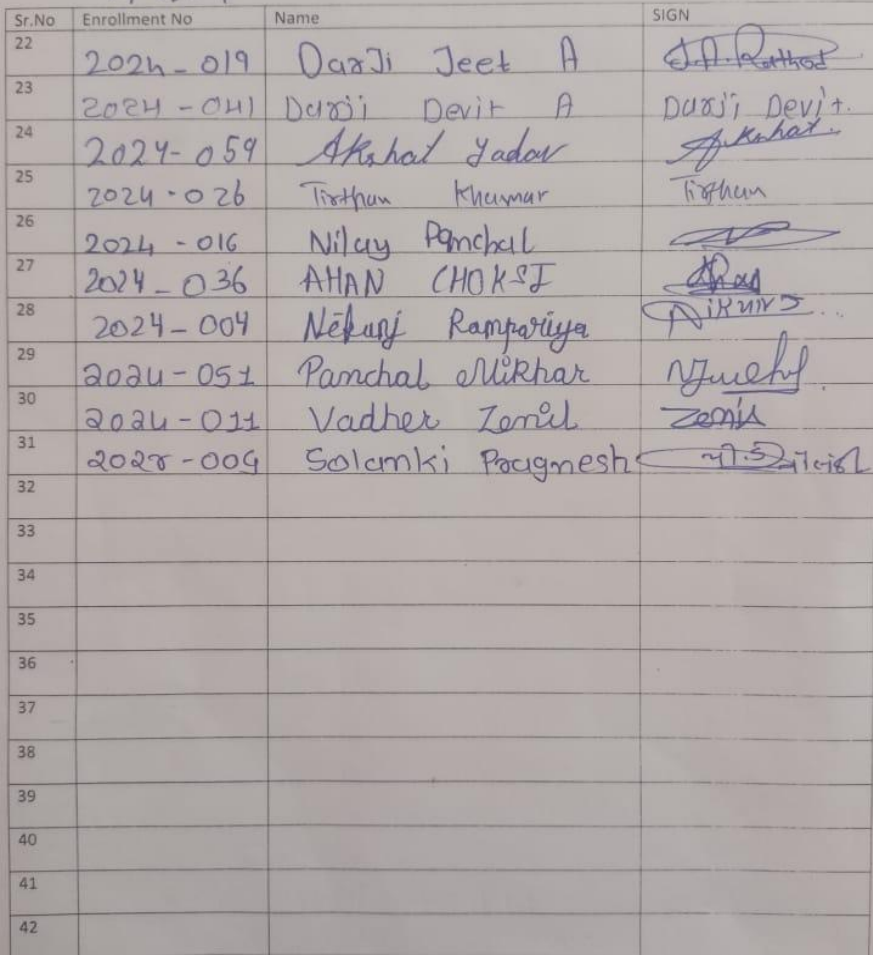 Sr.No Enrollment No Name SIGN
22 2024-019 DarJi Jeet A
23 2024-041 Darji Devit A Darji Devit.
24 2024-059 Akshat Yadav Akshat.
25 2024-026 Tirthan Khumar Tirthan
26 2024-016 Nilay Panchal
27 2024-036 AHAN CHOKSI Ahan
28 2024-004 Nikunj Rampariya
29 2024-051 Panchal Mikhar
30 2024-011 Vadher Zenil Zenil
31 Solanki Pragnesh
32
33
34
35
36
37
38
39
40
41
42